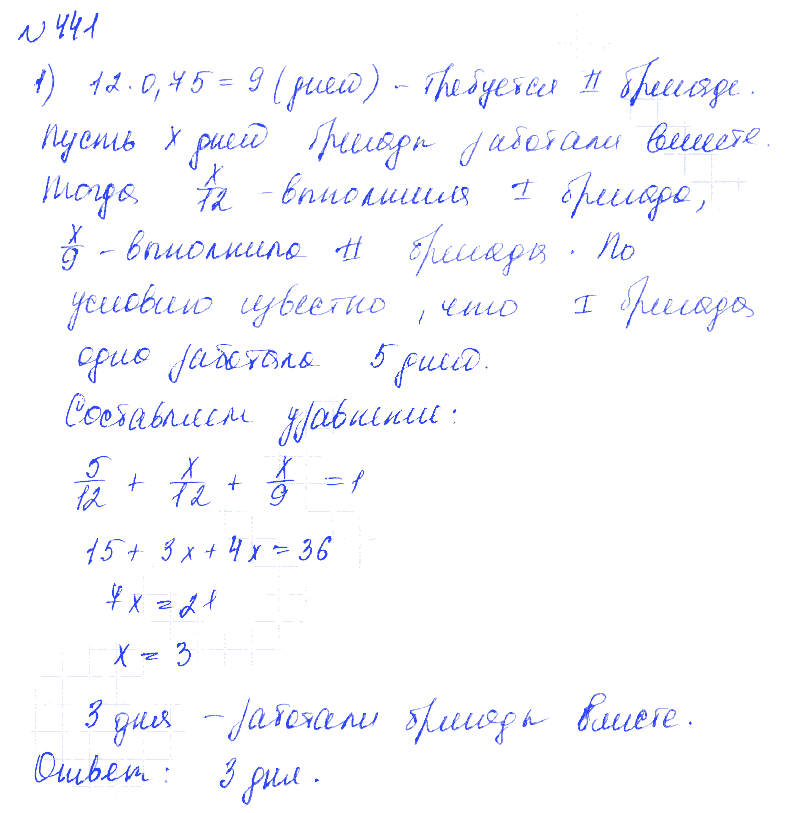 № 441
1) 12·0,75 = 9 (дней) – требуется II бригаде.
Пусть x дней бригады работали вместе.
Тогда x/12 – выполнила I бригада,
x/9 – выполнила II бригада. По
условию известно, что I бригада
одна работала 5 дней.
Составляем уравнение:
5/12 + x/12 + x/9 = 1
15 + 3x + 4x = 36
7x = 21
x = 3
3 дня – работали бригады вместе.
Ответ: 3 дня.